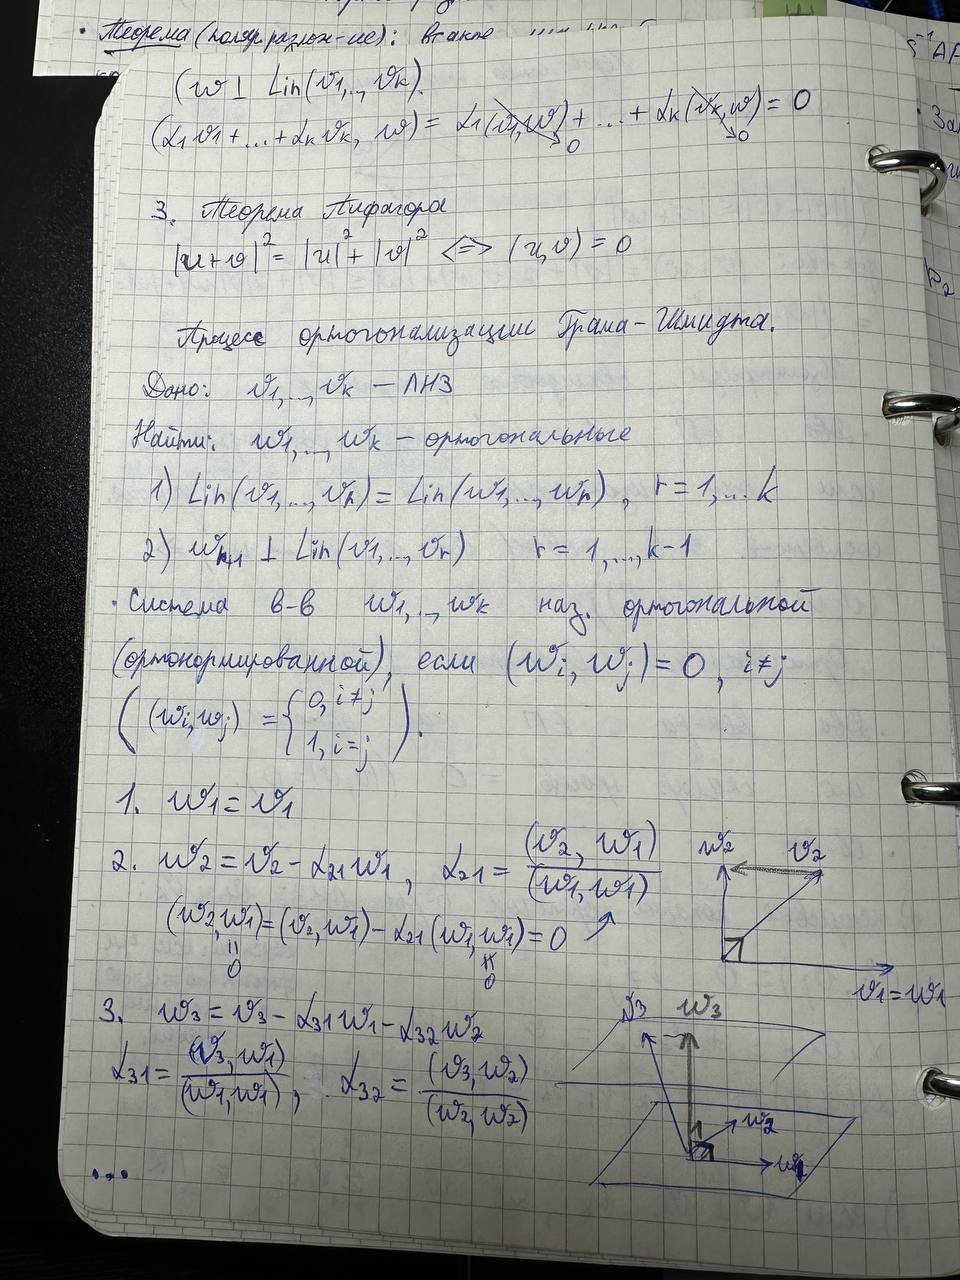 • Теорема (поляр. разлож-ие): Всякое
(w ⊥ Lin(v1,..,vk).
(α1v1+...+αkvk, w) = α1(v1,w) + ... + αk(vk,w) = 0
0
0
3. Теорема Пифагора
|u+v|² = |u|² + |v|² <=> (u,v) = 0
Процесс ортогонализации Грама-Шмидта.
Дано: v1,..,vk – ЛНЗ
Найти: w1,...,wk – ортогональные
1) Lin(v1,...,vr) = Lin(w1,...,wr), r = 1,...k
2) wr+1 ⊥ Lin(v1,..,vr) r = 1,...,k-1
• Система в-в w1,..,wk наз. ортогональной
(ортонормированной), если (wi, wj) = 0, i≠j
((wi,wj) = { 0, i≠j
1, i=j ).
1. w1 = v1
2. w2 = v2 - α21w1, α21 = (v2, w1) / (w1, w1)
w2 v2
(w2,w1) = (v2,w1) - α21(w1,w1) = 0
0
0
v1=w1
3. w3 = v3 - α31w1 - α32w2
v3 w3
α31 = (v3,w1) / (w1,w1), α32 = (v3,w2) / (w2,w2)
w2
w1
...